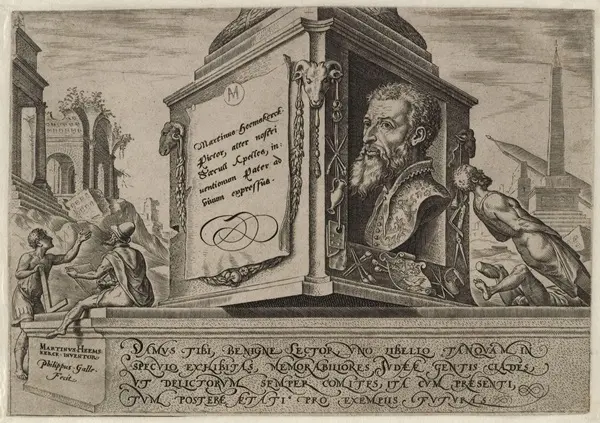 M
Martinus Heemskerck
Pictor, alter nostri
Sæculi Apelles, in-
uentionum Pater ad
viuum expressus.
MARTINVS HEEMS
KERCK INVENTOR.
Philippus Galle
Fecit
DAMUS TIBI, BENIGNE LECTOR, UNO LIBELLO TANQVAM IN
SPECULO EXHIBITAS, MEMORABILIORES JUDÆÆ GENTIS CLADES,
UT DELICTORVM SEMPER COMITES, ITA CVM PRÆSENTI,
TVM POSTERÆ ÆTATI PRO EXEMPLIS FUTURAS.